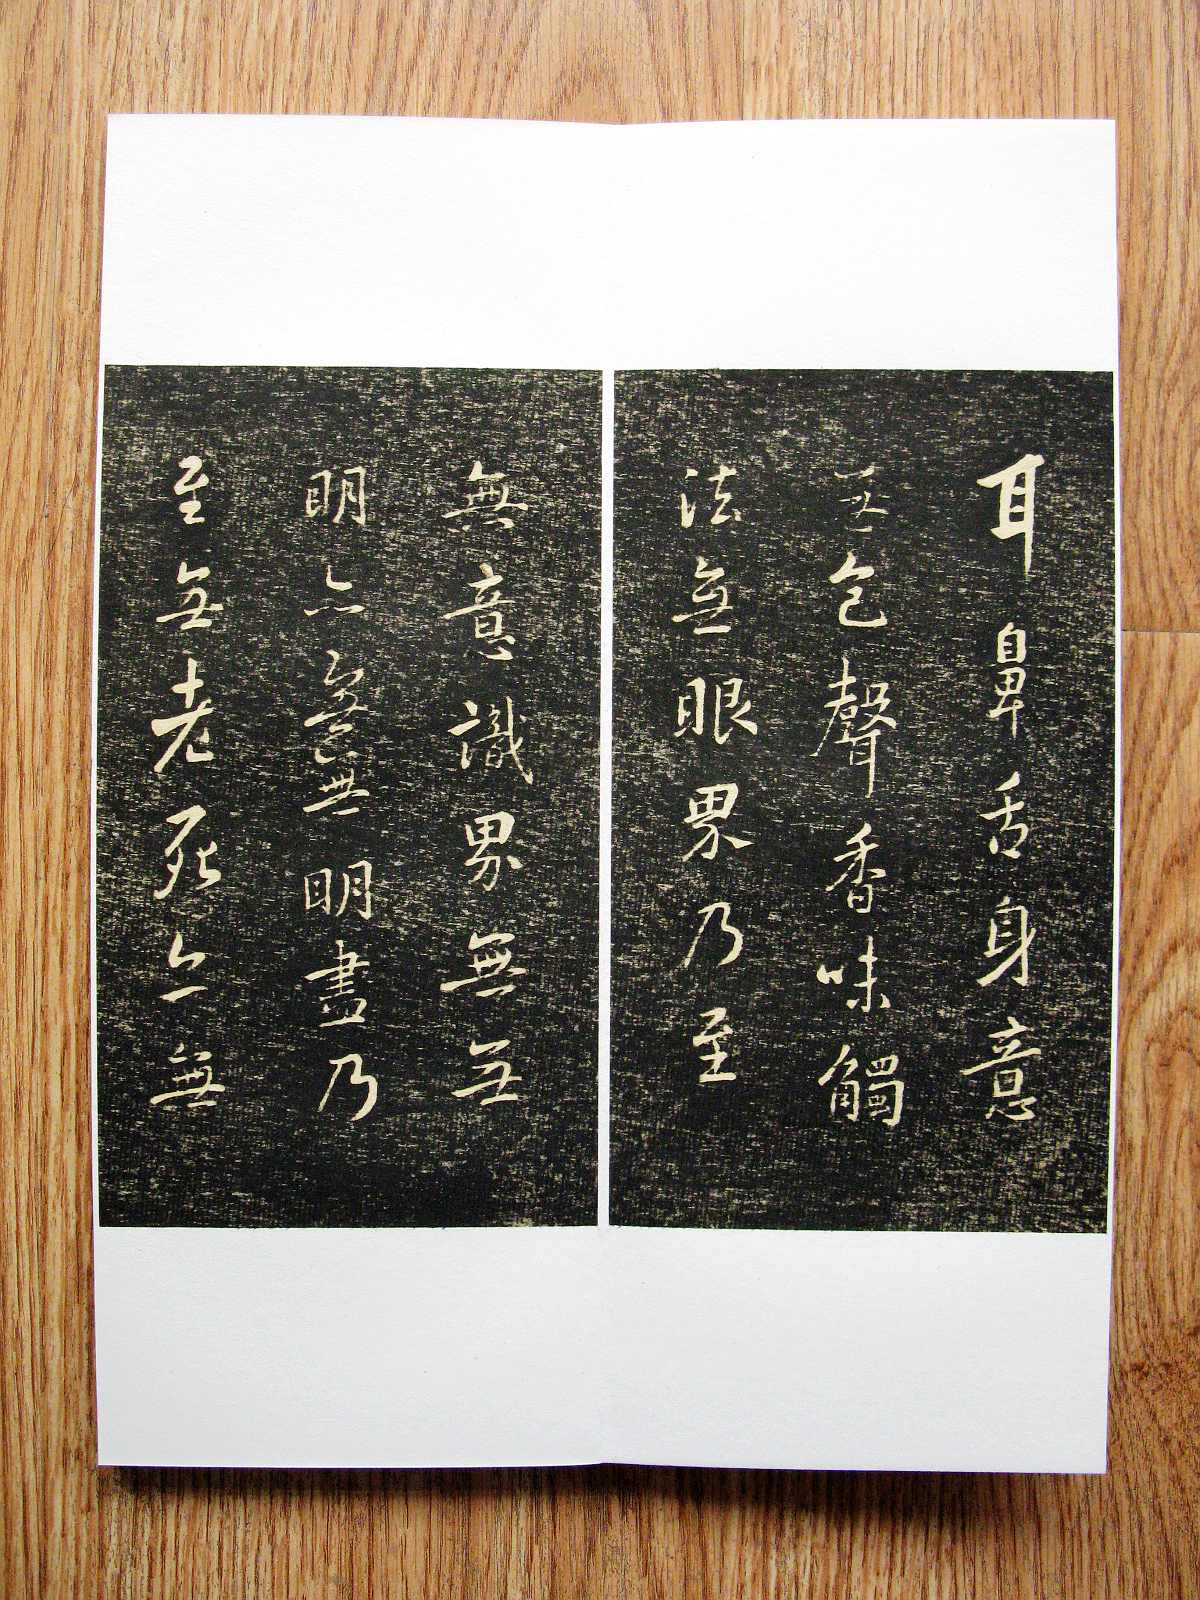 耳鼻舌身意
無色聲香味觸
法無眼界乃至
無意識界無無
明亦無無明盡乃
至無老死亦無